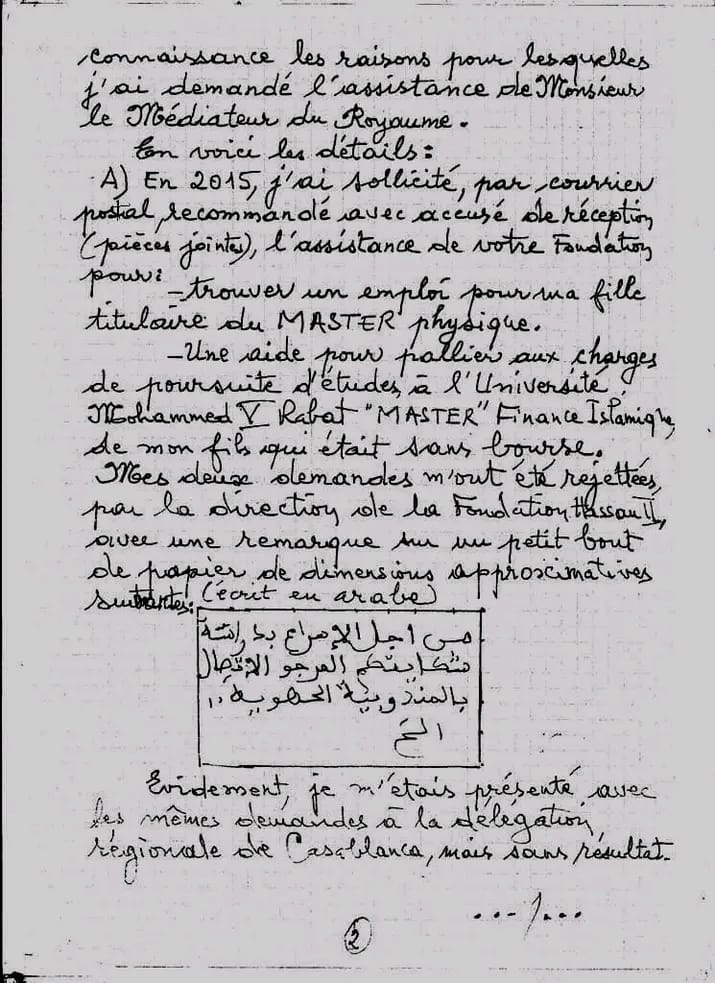 connaissance les raisons pour lesquelles
j'ai demandé l'assistance de Monsieur
le Médiateur du Royaume.
En voici les détails:
A) En 2015, j'ai sollicité, par courrier
postal, recommandé avec accusé de réception
(pièces jointes), l'assistance de votre Fondation
pour:
-trouver un emploi pour ma fille
titulaire du MASTER physique.
-Une aide pour pallier aux charges
de poursuite d'études, à l'Université
Mohammed V Rabat "MASTER" Finance Islamique,
de mon fils qui était sans bourse.
Mes deux demandes m'ont été rejettées,
par la direction de la Fondation Hassan II,
avec une remarque sur un petit bout
de papier de dimensions approximatives
suivantes: (écrit en arabe)
من اجل الإسراع بدراسة
شكايتكم المرجو الاتصال
بالمندوبية الجهوية ..
الخ
Evidement, je m'étais présenté avec
les mêmes demandes à la délégation
régionale de Casablanca, mais sans résultat.
.../...
2